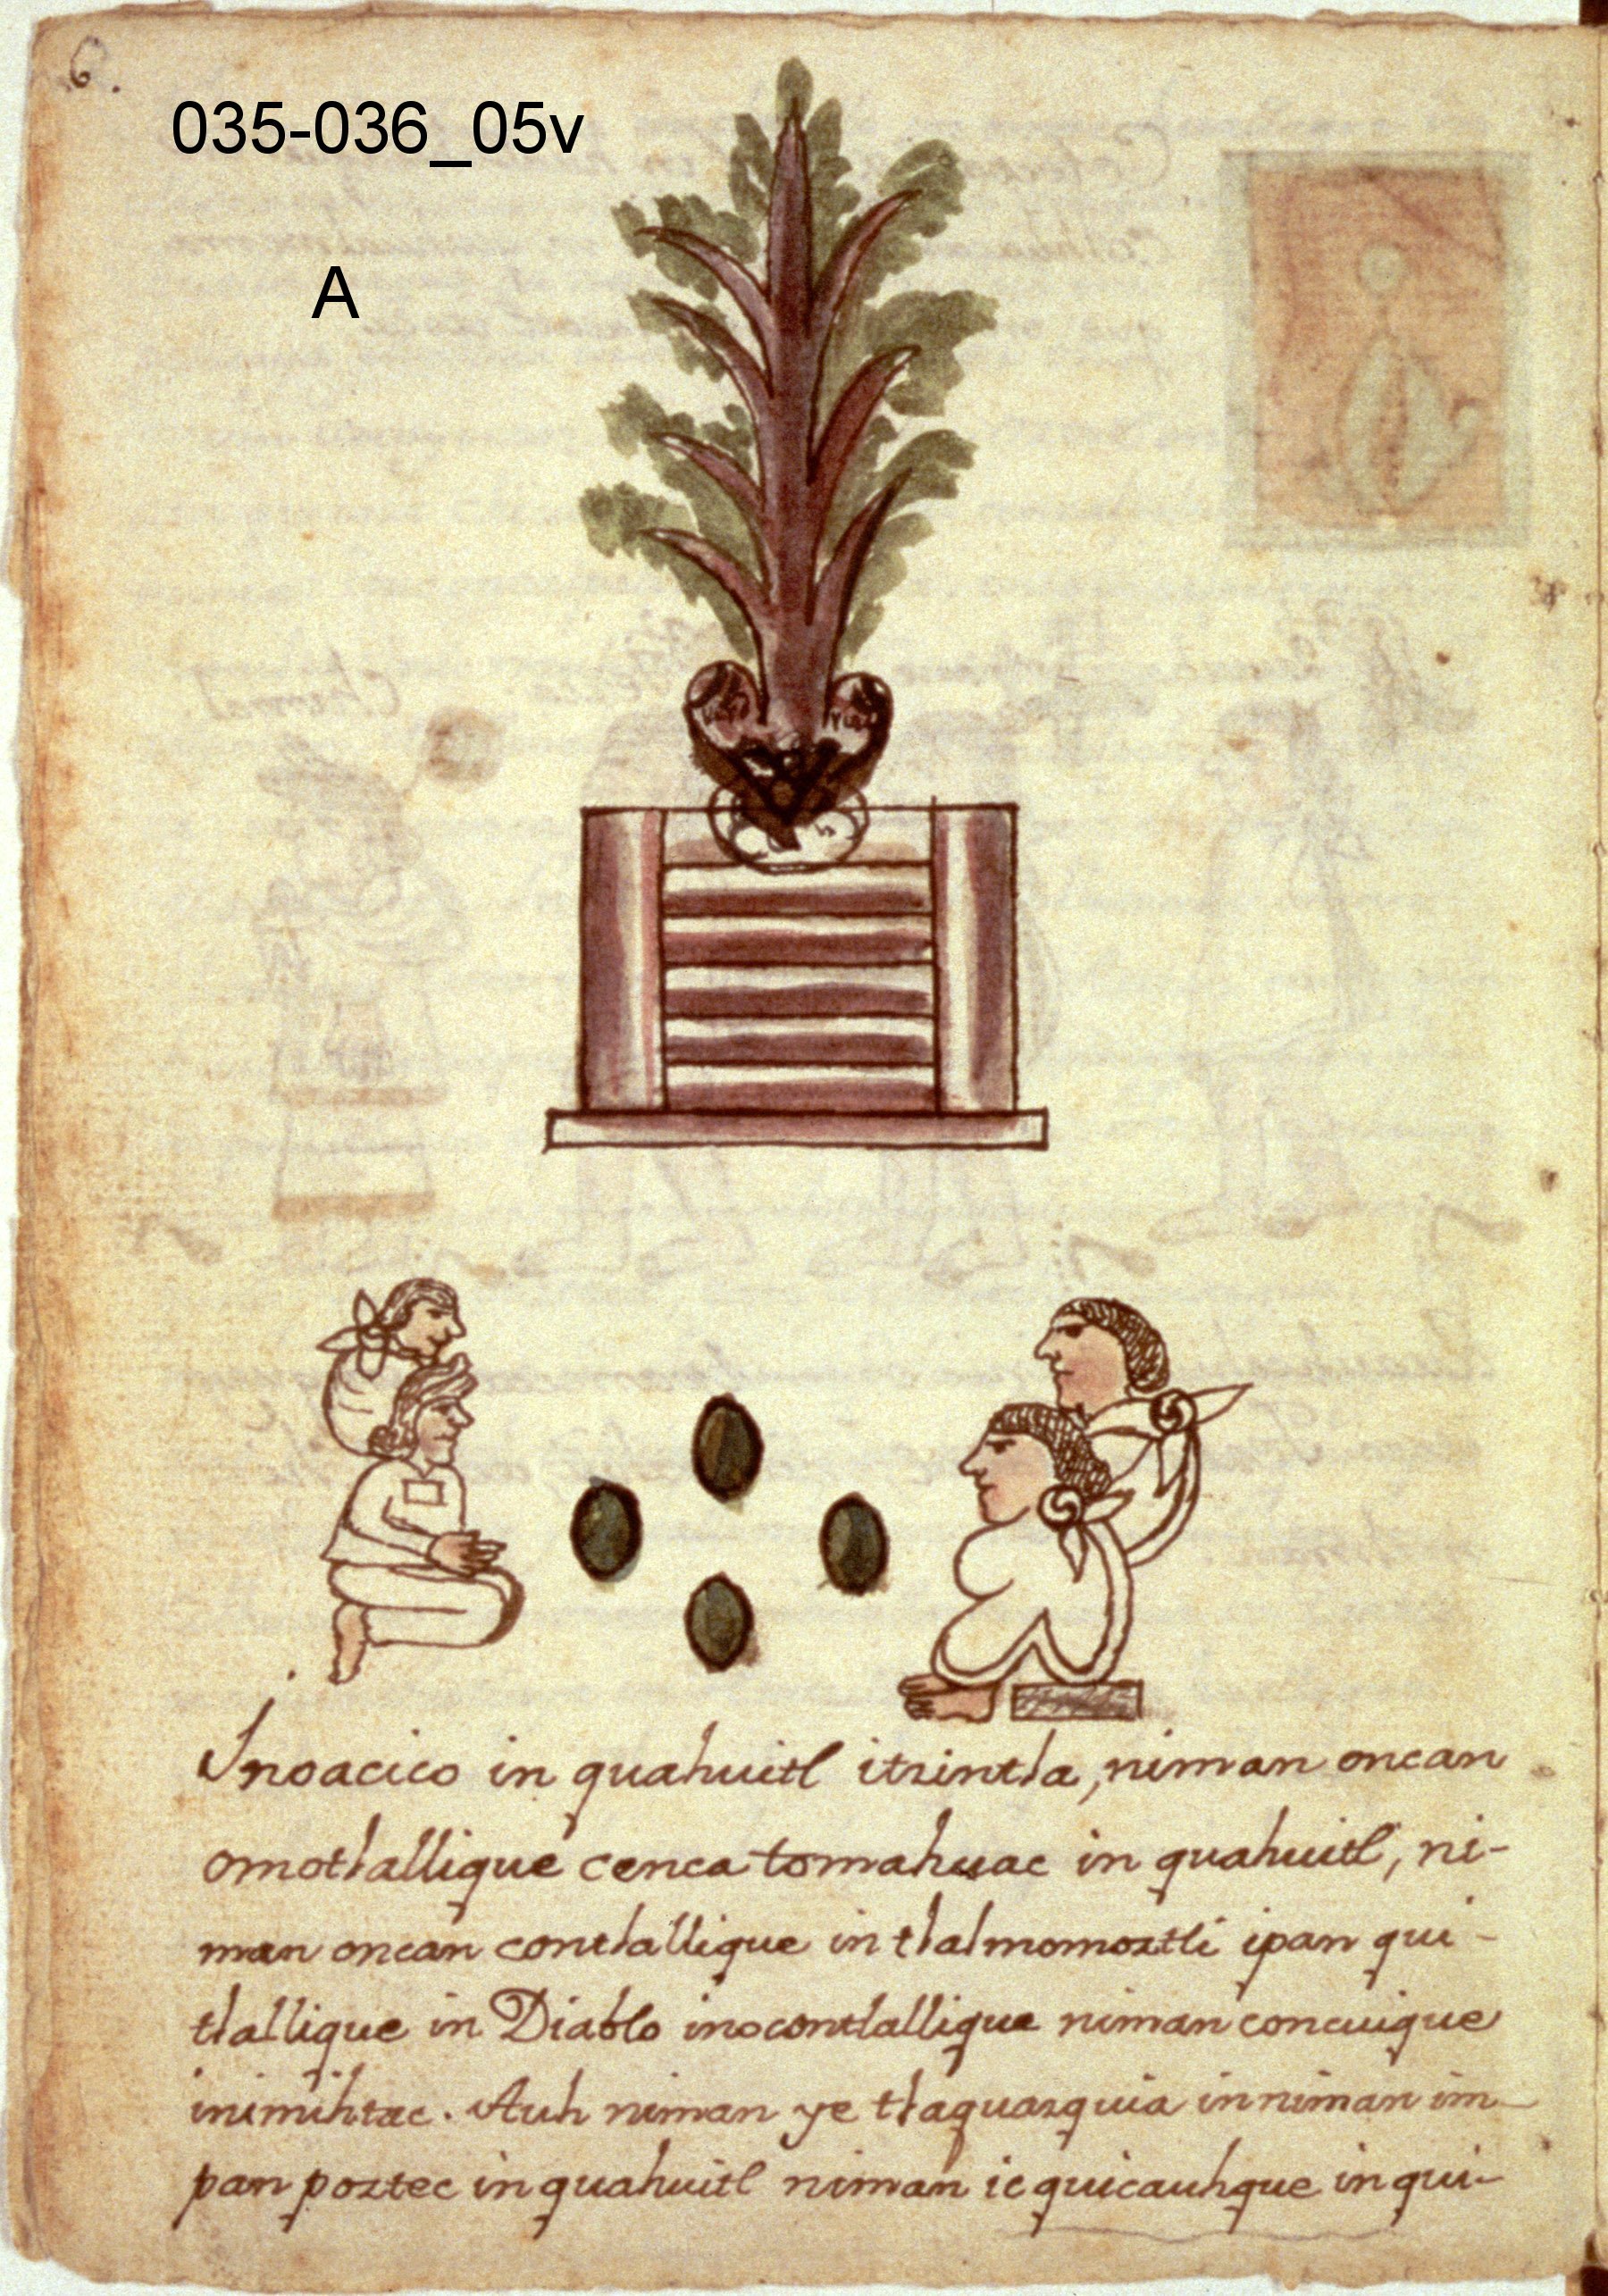 6.
035-036_05v
A
Inoacico in quahuitl itzintla, niman oncan
omotlallique cenca tomahuac in quahuitl, ni-
man oncan contlallique in tlalmomoztli ipan qui-
tlallique in Diablo inocontlallique niman concuique
inimihtac. Auh niman ye tlaquazquia inniman im-
pan poztec in quahuitl niman ic quicauhque in qui-